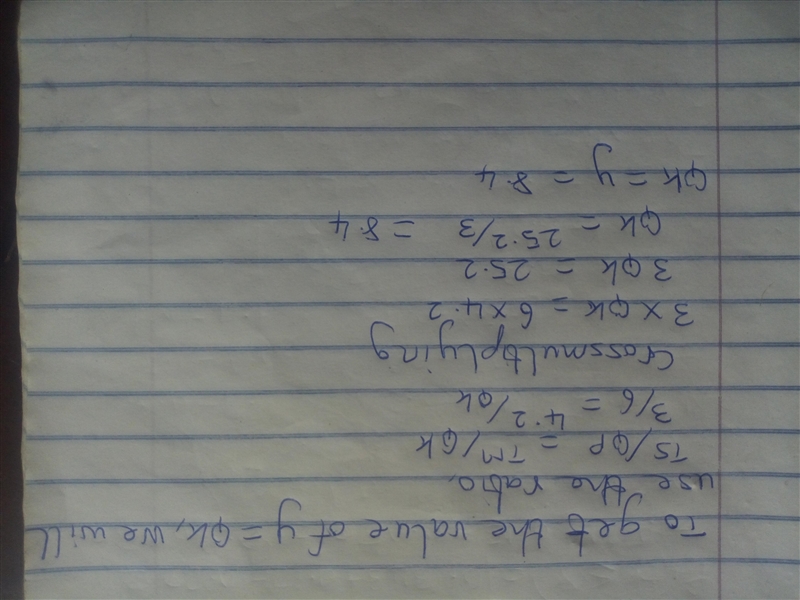 To get the value of y = QK, we will
use the ratio,
TS/QP = TM/QK
3/6 = 4.2/QK
Crossmultiplying
3 × QK = 6 × 4.2
3QK = 25.2
QK = 25.2/3 = 8.4
QK = y = 8.4